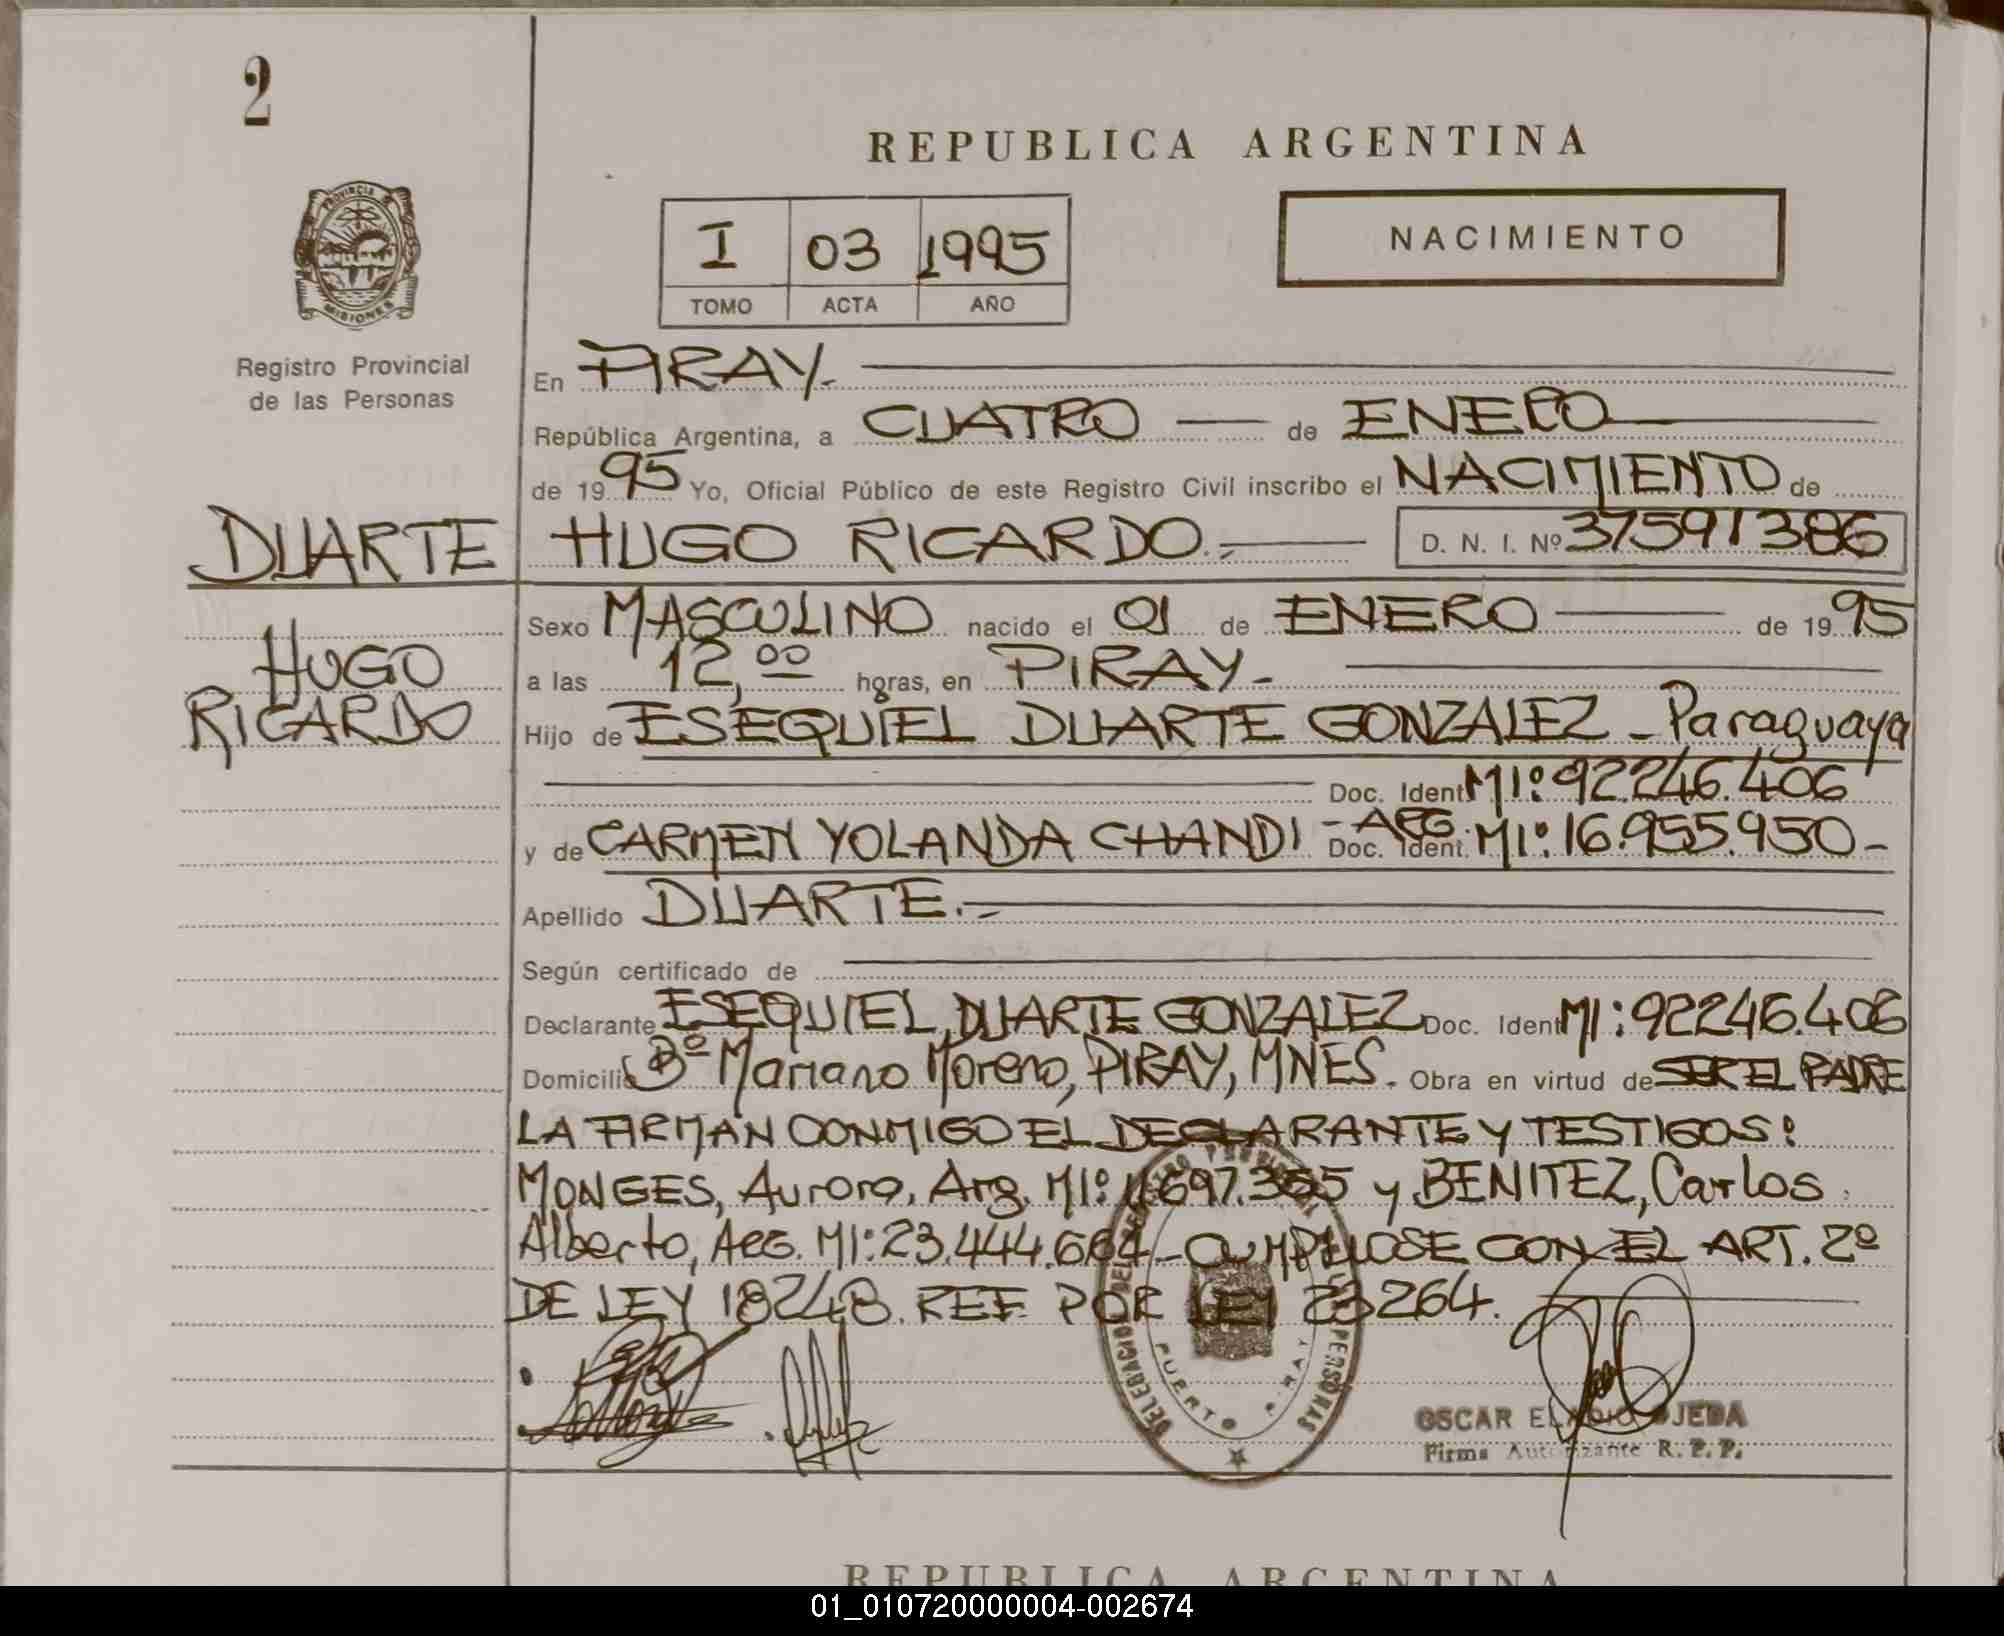 2
REPUBLICA ARGENTINA
PROVINCIA
MISIONES
Registro Provincial
de las Personas
I 03 1995
TOMO ACTA AÑO
NACIMIENTO
En PIRAY.
República Argentina, a CUATRO de ENERO
de 1995 Yo, Oficial Público de este Registro Civil inscribo el NACIMIENTO de
DUARTE HUGO RICARDO.- D. N. I. Nº 37591386
HUGO
RICARDO
Sexo MASCULINO nacido el 01 de ENERO de 1995
a las 12,00 horas, en PIRAY-
Hijo de ESEQUIEL DUARTE GONZALEZ - Paraguaya
Doc. Ident. MIº 92.246.406
y de CARMEN YOLANDA CHANDI - ARG. Doc. Ident. MIº: 16.955.950-
Apellido DUARTE.-
Según certificado de
Declarante ESEQUIEL DUARTE GONZALEZ Doc. Ident MI: 92246.406
Domicilio Bº Mariano Moreno, PIRAY, MNES. Obra en virtud de SER EL PADRE
LA FIRMAN CONMIGO EL DECLARANTE Y TESTIGOS:
MONGES, Aurora, Arg. MIº 697.355 y BENITEZ, Carlos
Alberto, ARG. MI: 23.444.664- CUMPLIOSE CON EL ART. 2º
DE LEY 18248. REF. POR LEY 23264.
DELEGACION DEL REGISTRO PROVINCIAL DE LAS PERSONAS
PUERTO PIRAY
OSCAR ELADIO OJEDA
Firma Autorizante R. P. P.
REPUBLICA ARGENTINA
01_010720000004-002674